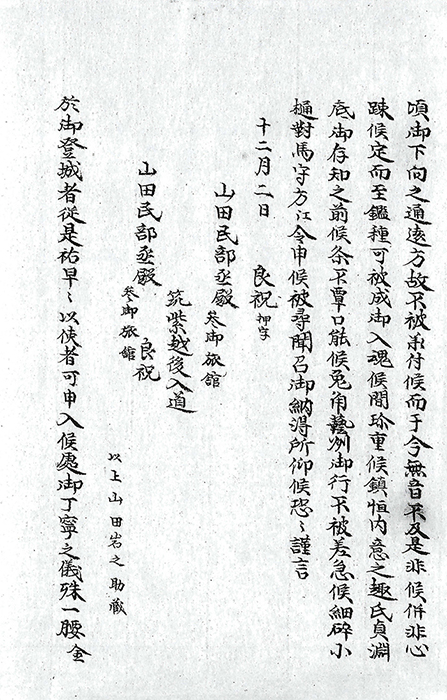 頃御下向之通遠方故不被承付候而于今無音不及是非候併非心
踈候定而至鑑種可被成御入魂候間珍重候鎮恒内意之趣氏貞淵
底御存知之前候条不覃口能候兎角藝州御行不被差急候細砕小
樋對馬守方江令申候被尋聞召御納得所仰候恐々謹言
十二月二日 良祝 押字
山田民部丞殿 参御旅館
筑紫越後入道
山田民部丞殿 良祝
参御旅館
以上山田岩之助蔵
於御登城者従是祐早々以使者可申入候處御丁寧之儀殊一腰 金